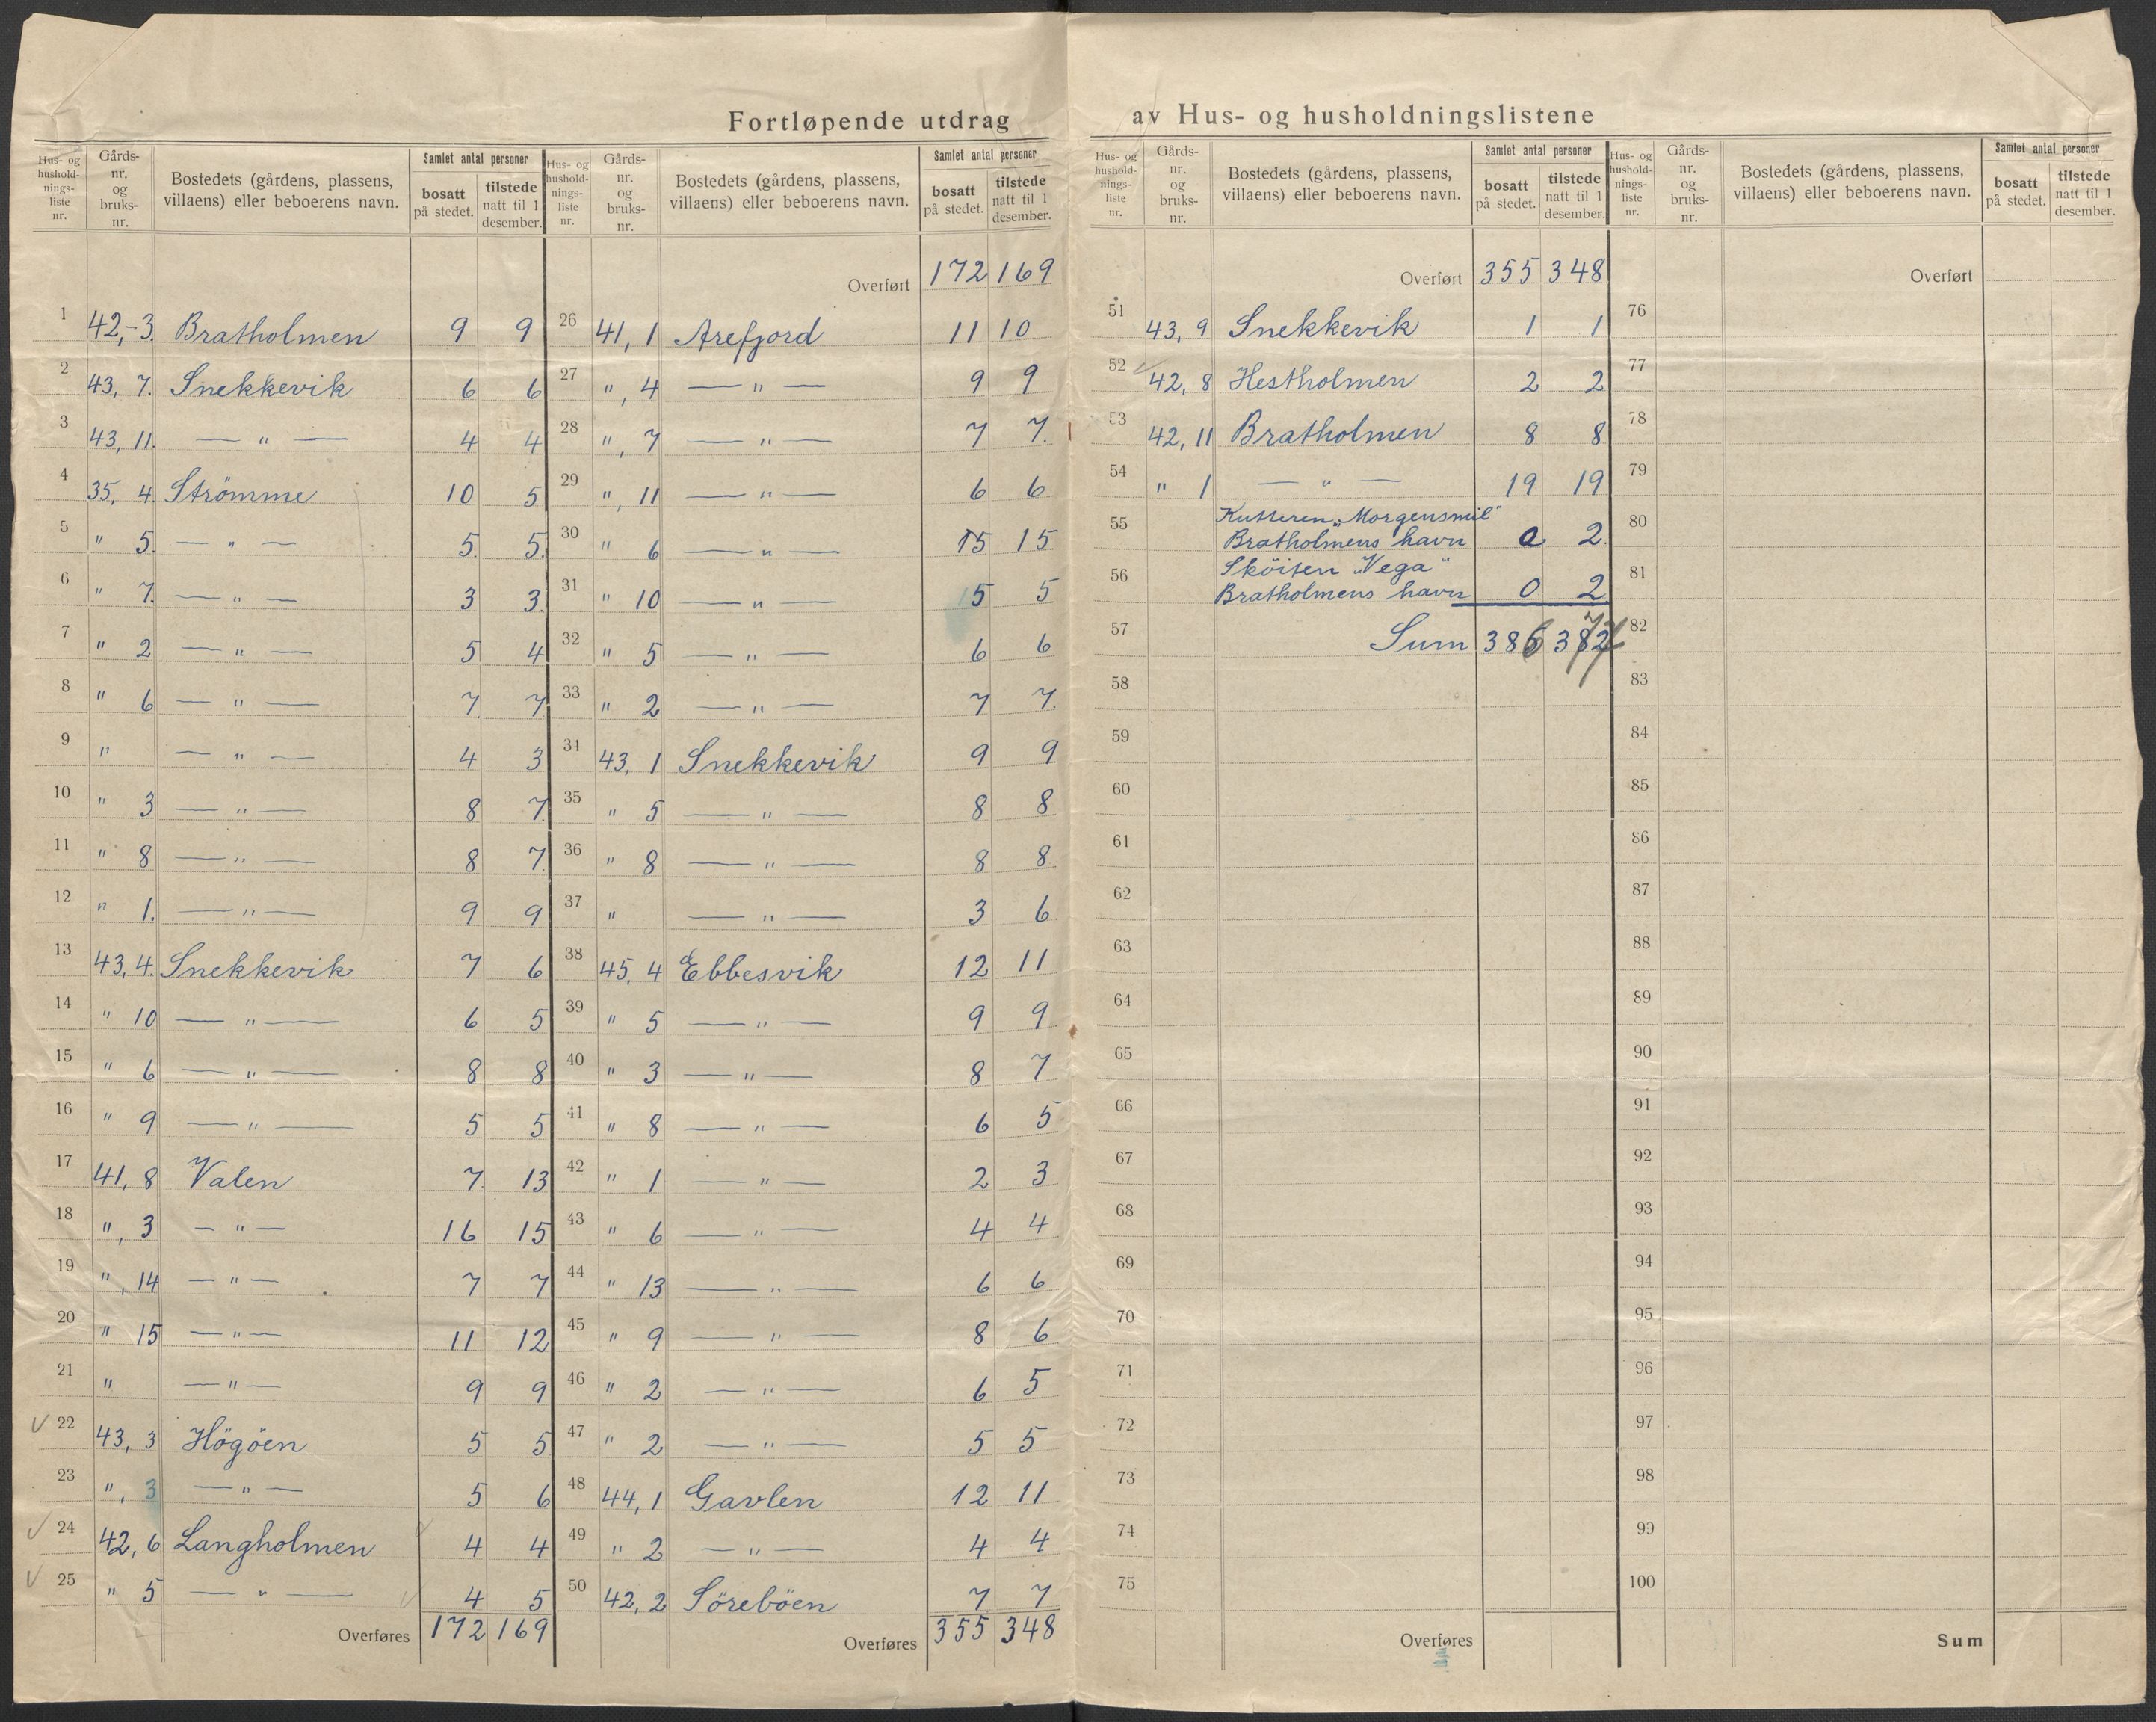 Fortløpende utdrag av Hus- og husholdningslistene
Hus- og hushold- nings- liste nr.
Gårds- nr. og bruks- nr.
Bostedets (gårdens, plassens, villaens) eller beboerens navn.
Samlet antal personer
bosatt på stedet.
tilstede natt til 1 desember.
1 42,-3. Bratholmen 9 9
2 43, 7. Snekkevik 6 6
3 43, 11. — " — 4 4
4 35, 4. Strömme 10 5
5 " 5. — " — 5. 5.
6 " 7. — " — 3 3.
7 " 2 — " — 5 4
8 " 6 — " — 7 7
9 " — " — 4 3
10 " 3 — " — 8 7.
11 " 8 — " — 8 7.
12 " 1. — " — 9 9
13 43, 4. Snekkevik 7 6
14 " 10 — " — 6 5
15 " 6 — " — 8 8
16 " 9 — " — 5 5
17 41, 8 Valen 7. 13
18 ", 3 — " — 16 15
19 ", 14 — " — 7 7
20 " 15 — " — 11 12
21 " — " — 9 9
22 43, 3 Högöen 5 5
23 ", 3 — " — 5 6
24 42, 6 Langholmen 4 4
25 " 5 — " — 4 5
Overføres 172 169
Hus- og hushold- nings- liste nr.
Gårds- nr. og bruks- nr.
Bostedets (gårdens, plassens, villaens) eller beboerens navn.
Samlet antal personer
bosatt på stedet.
tilstede natt til 1 desember.
Overført 172 169
26 41, 1 Arefjord 11 10
27 ", 4 — " — 9 9
28 ", 7 — " — 7 7.
29 ", 11 — " — 6 6
30 " 6 — " — 15 15
31 " 10 — " — 5 5
32 " 5 — " — 6 6
33 " 2 — " — 7 7.
34 43, 1 Snekkevik 9 9
35 " 5 — " — 8 8
36 " 8 — " — 8 8
37 " — " — 3 6
38 45, 4 Ebbesvik 12 11
39 " 5 — " — 9 9
40 " 3 — " — 8 7
41 " 8 — " — 6 5
42 " 1 — " — 2 3
43 " 6 — " — 4 4
44 " 13 — " — 6 6
45 " 9 — " — 8 6
46 " 2 — " — 6 5
47 " 2 — " — 5 5
48 44, 1 Gavlen 12 11
49 " 2 — " — 4 4
50 42, 2 Söreböen 7 7
Overføres 355 348
Hus- og hushold- nings- liste nr.
Gårds- nr. og bruks- nr.
Bostedets (gårdens, plassens, villaens) eller beboerens navn.
Samlet antal personer
bosatt på stedet.
tilstede natt til 1 desember.
Overført 355 348
51 43, 9 Snekkevik 1 1
52 42, 8 Hestholmen 2 2
53 42, 11 Bratholmen 8 8
54 " 1 — " — 19 19
55 Kutteren „Morgensmil"
Bratholmens havn 0 2.
56 Sköiten „Vega"
Bratholmens havn 0 2
57 Sum 386 382 77
58
59
60
61
62
63
64
65
66
67
68
69
70
71
72
73
74
75
Overføres
Hus- og hushold- nings- liste nr.
Gårds- nr. og bruks- nr.
Bostedets (gårdens, plassens, villaens) eller beboerens navn.
Samlet antal personer
bosatt på stedet.
tilstede natt til 1 desember.
Overført
76
77
78
79
80
81
82
83
84
85
86
87
88
89
90
91
92
93
94
95
96
97
98
99
100
Sum